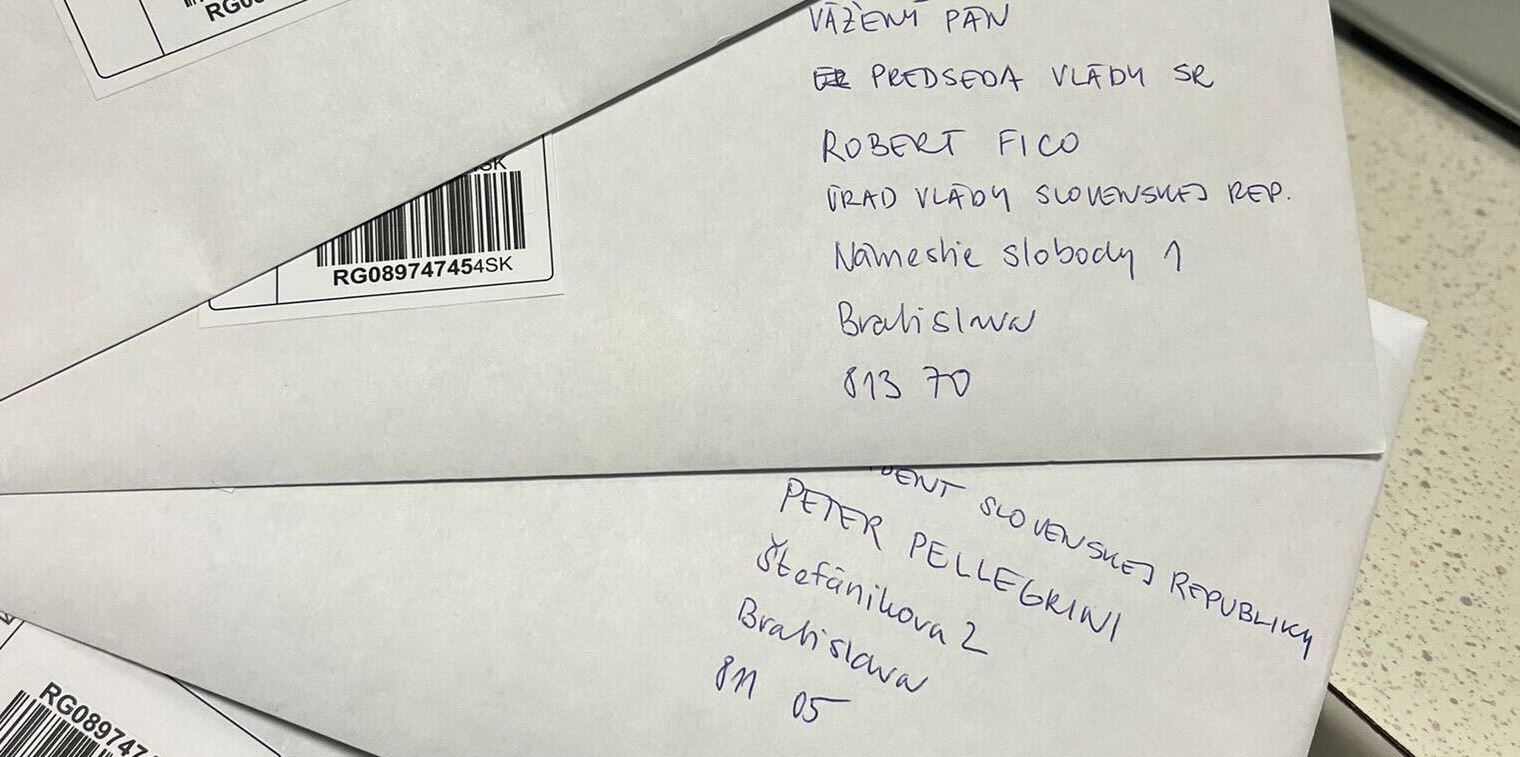 RG08
VÁŽENÝ PÁN
PREDSEDA VLÁDY SR
ROBERT FICO
ÚRAD VLÁDY SLOVENSKEJ REP.
Námestie slobody 1
Bratislava
813 70
SK
RG089747454SK
DENT SLOVENSKEJ REPUBLIKY
PETER PELLEGRINI
Štefánikova 2
Bratislava
811 05
RG089747